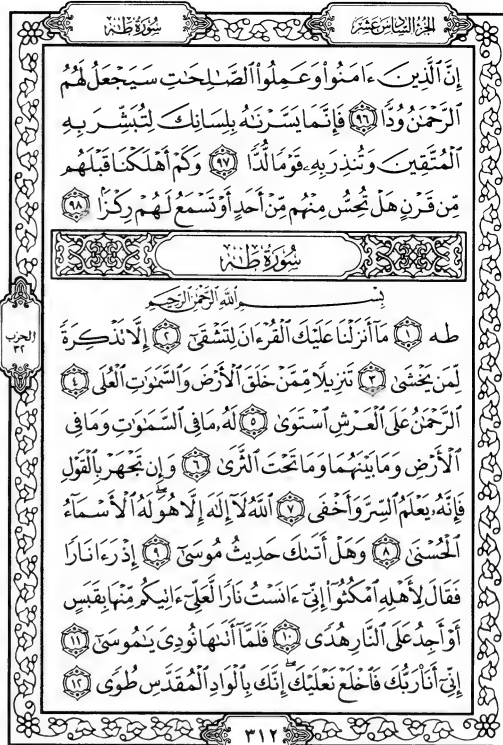 سُورَةُ طٰهٰ
الجُزْءُ السَّادِسَ عَشَرَ
إِنَّ ٱلَّذِينَ ءَامَنُوا۟ وَعَمِلُوا۟ ٱلصَّٰلِحَٰتِ سَيَجْعَلُ لَهُمُ
ٱلرَّحْمَٰنُ وُدًّا ٩٦ فَإِنَّمَا يَسَّرْنَٰهُ بِلِسَانِكَ لِتُبَشِّرَ بِهِ
ٱلْمُتَّقِينَ وَتُنذِرَ بِهِۦ قَوْمًا لُّدًّا ٩٧ وَكَمْ أَهْلَكْنَا قَبْلَهُم
مِّن قَرْنٍ هَلْ تُحِسُّ مِنْهُم مِّنْ أَحَدٍ أَوْ تَسْمَعُ لَهُمْ رِكْزًۢا ٩٨
سُورَةُ طٰهٰ
بِسْمِ ٱللَّهِ ٱلرَّحْمَٰنِ ٱلرَّحِيمِ
طه ١ مَآ أَنزَلْنَا عَلَيْكَ ٱلْقُرْءَانَ لِتَشْقَىٰٓ ٢ إِلَّا تَذْكِرَةً
لِّمَن يَخْشَىٰ ٣ تَنزِيلًا مِّمَّنْ خَلَقَ ٱلْأَرْضَ وَٱلسَّمَٰوَٰتِ ٱلْعُلَى ٤
ٱلرَّحْمَٰنُ عَلَى ٱلْعَرْشِ ٱسْتَوَىٰ ٥ لَهُۥ مَا فِى ٱلسَّمَٰوَٰتِ وَمَا فِى
ٱلْأَرْضِ وَمَا بَيْنَهُمَا وَمَا تَحْتَ ٱلثَّرَىٰ ٦ وَإِن تَجْهَرْ بِٱلْقَوْلِ
فَإِنَّهُۥ يَعْلَمُ ٱلسِّرَّ وَأَخْفَى ٧ ٱللَّهُ لَآ إِلَٰهَ إِلَّا هُوَۖ لَهُ ٱلْأَسْمَآءُ
ٱلْحُسْنَىٰ ٨ وَهَلْ أَتَىٰكَ حَدِيثُ مُوسَىٰٓ ٩ إِذْ رَءَا نَارًا
فَقَالَ لِأَهْلِهِ ٱمْكُثُوٓا۟ إِنِّىٓ ءَانَسْتُ نَارًا لَّعَلِّىٓ ءَاتِيكُم مِّنْهَا بِقَبَسٍ
أَوْ أَجِدُ عَلَى ٱلنَّارِ هُدًى ١٠ فَلَمَّآ أَتَىٰهَا نُودِىَ يَٰمُوسَىٰٓ ١١
إِنِّىٓ أَنَا۠ رَبُّكَ فَٱخْلَعْ نَعْلَيْكَۖ إِنَّكَ بِٱلْوَادِ ٱلْمُقَدَّسِ طُوًى ١٢
الحزب
٣٢
٣١٢